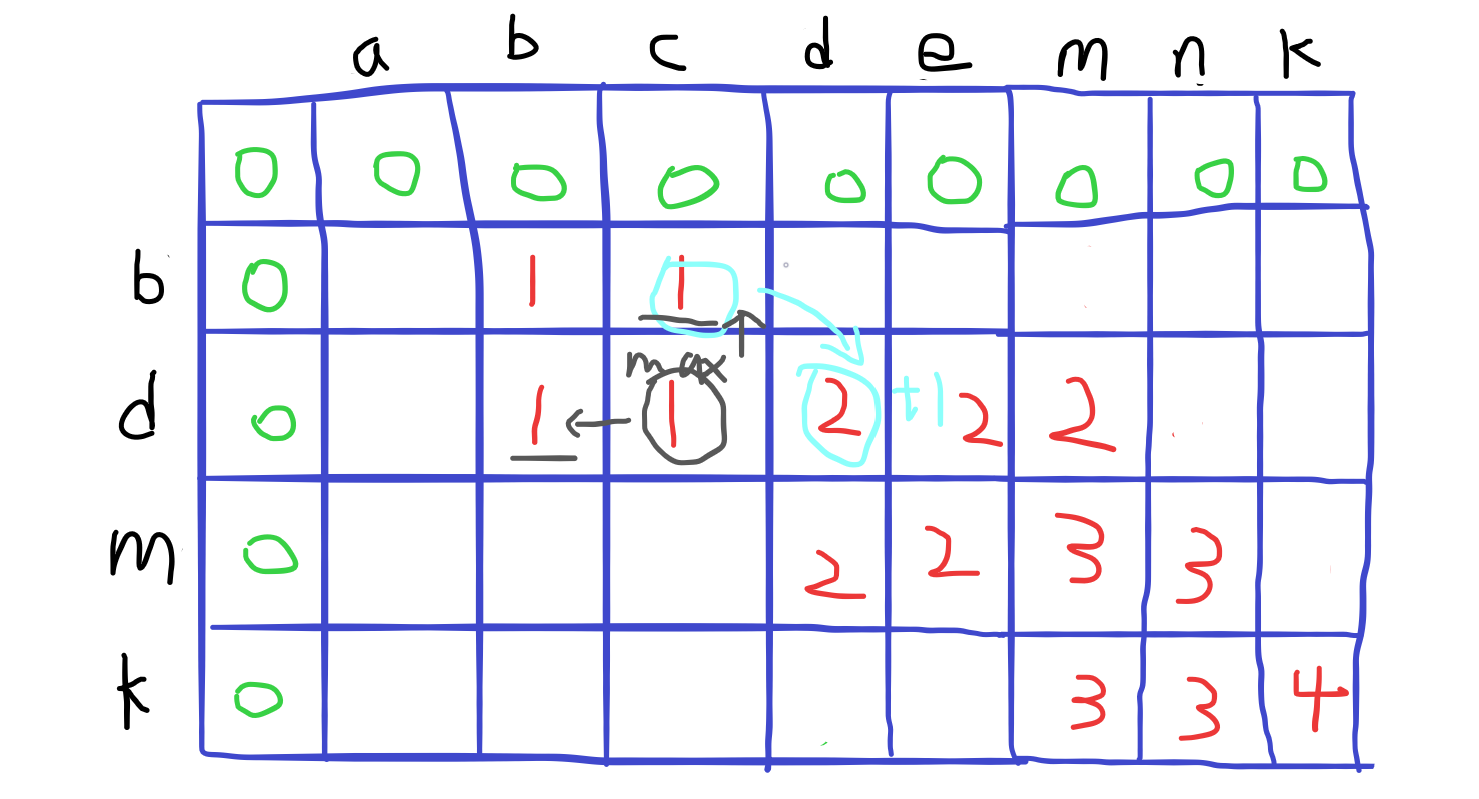 a b c d e m n k
0 0 0 0 0 0 0 0 0
b 0 1 1
max
d 0 1 1 2 +1 2 2
m 0 2 2 3 3
k 0 3 3 4